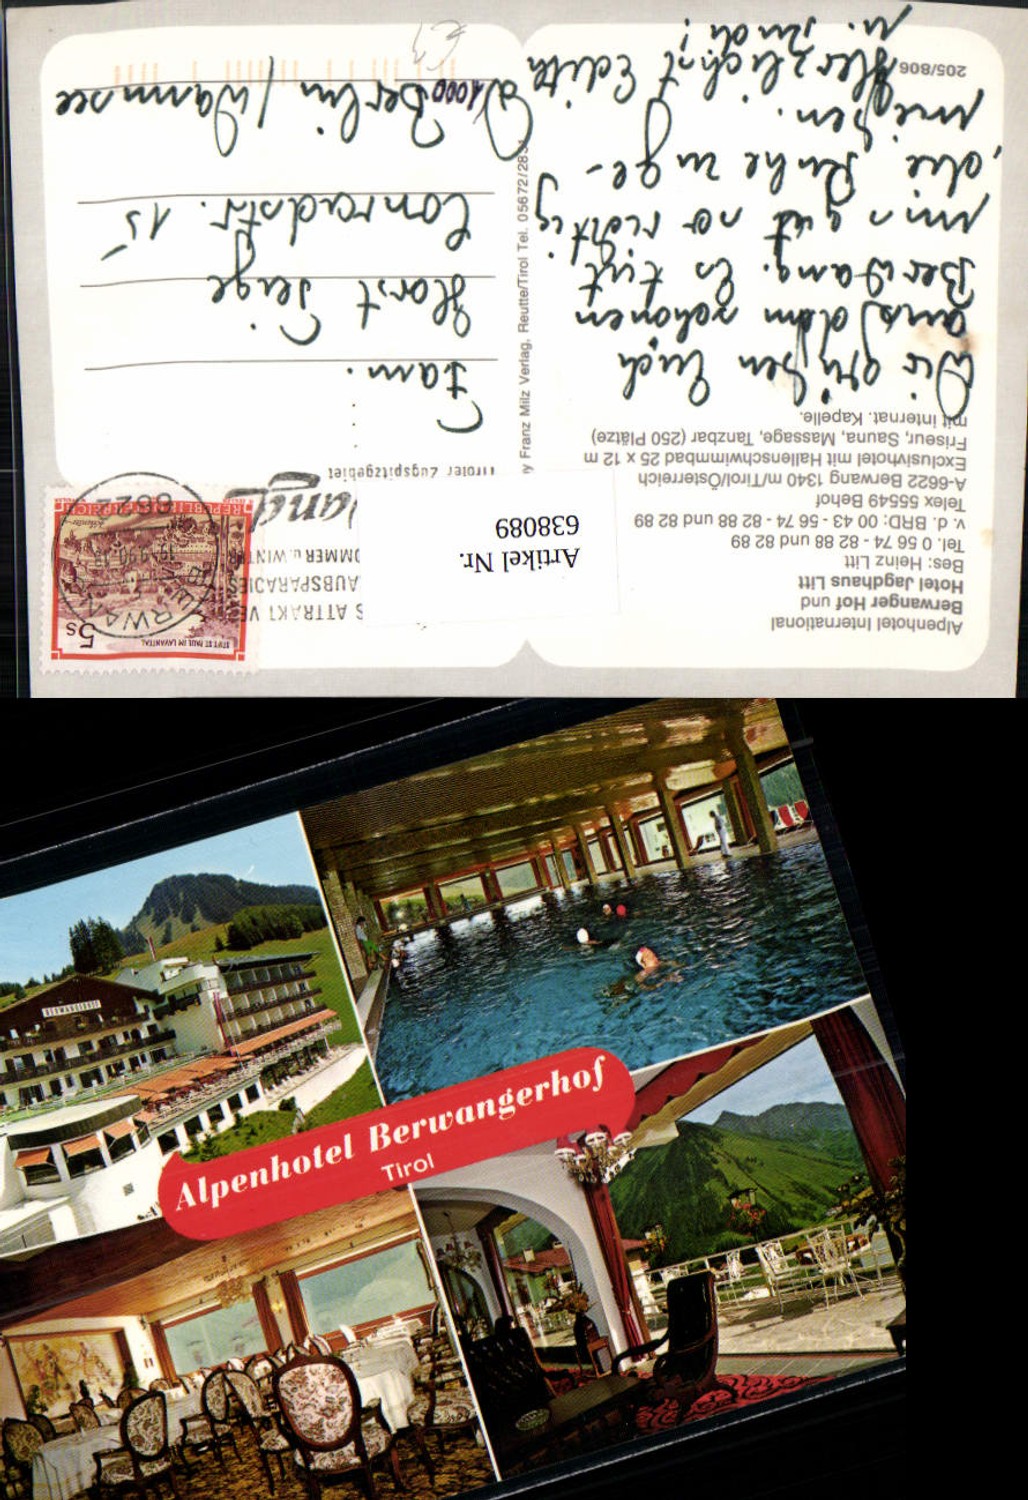 Alpenhotel International
Berwanger Hof und
Hotel Jagdhaus Litt
Bes: Heinz Litt
Tel. 0 56 74 - 82 88 und 82 89
v. d. BRD: 00 43 - 56 74 - 82 88 und 82 89
Telex 55549 Behof
A-6622 Berwang 1340 m/Tirol/Österreich
Exclusivhotel mit Hallenschwimmbad 25 x 12 m
Friseur, Sauna, Massage, Tanzbar (250 Plätze)
mit internat. Kapelle.
Wir grüßen Euch
aus dem schönen
Berwang. Es tut
mir gut so richtig
die Ruhe zu ge-
nießen.
Herzlichst Edith
205/806
Franz Milz Verlag, Reutte/Tirol Tel. 05672/28
Artikel Nr.
638089
STIFT ST. PAUL IM LAVANTTAL
5 S
REPUBLIK ÖSTERREICH
6622
BERWANG
S ATTRAKT
AUBSPARADIES
OMMER u. WINTER
wang
Tiroler Zugspitzgebiet
Fam.
Horst Feige
Conradstr. 15
D 1000 Berlin / Wannsee
BERWANGERHOF
Alpenhotel Berwangerhof
Tirol